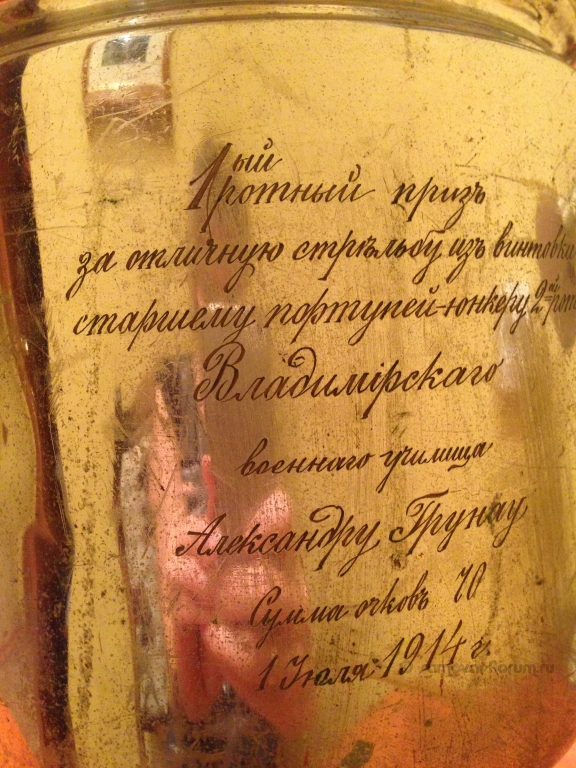 1ый ротный призъ
за отличную стрѣльбу изъ винтовки
старшему портупей-юнкеру 2ой роты
Владимірскаго
военнаго училища
Александру Грунау
Сумма очковъ 70
1 Іюля 1914 г.
samovarforum.ru